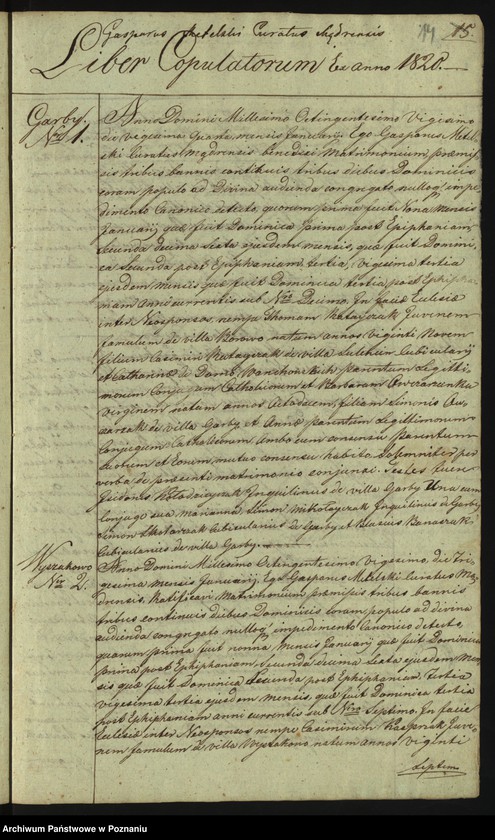 Gasparus Metelski Curatus Mądrensis
14 15.
Liber Copulatorum Ex anno 1820.
Garby.
Nro 1.
Anno Domini Millesimo Octingentesimo Vigesimo
die vigesima quarta mensis Januarii Ego Gasparus Metel-
ski Curatus Mądrensis benedixi Matrimonium, præmis-
sis tribus bannis continuis tribus diebus Dominicis
coram populo ad Divina audienda congregato nulloq impe-
dimento Canonico detecto, quorum prima fuit Nona Mensis
Januarii, quæ fuit Dominica prima post Epiphaniam,
secunda decima sexta ejusdem mensis, quæ fuit Domini-
ca Secunda post Epiphaniam, tertia, vigesima tertia
ejusdem mensis quæ fuit Dominica tertia, post Epipha-
niam Anni currentis sub Nro Decimo. In facie Ecclesiæ
inter Neosponsos nempe Thomam Ratayczak Juvenem
famulum de villa Borowo natum annos viginti Novem
filium Casimiri Ratayczak de villa Sulchun Cubicularii
et Catharinæ de Domo parentum Legitti-
morum Conjugum Catholicorum et Barbaram
virginem natam annos Octodecim, filiam Simonis Ow-
czarzak de villa Garby et Annæ parentum Legittimorum
Conjugum Catholicorum amborum consensu parentum
suorum et eorum, mutuo consensu habito solemniter per
verba de præsenti matrimonio conjunxi. Testes fuer
Gudonis Kołodzieyczak Inquilinus de villa Garby Una cum
Conjuge sua Marianna, Simon Mikołayczak Inquilinus de Garby
Simon Cubicularius de Garby et Blasius Banaszak
Cubicularius de villa Garby.
Wyszakowo
Nro 2.
Anno Domini Millesimo Octingentesimo, vigesimo, die Tri-
gesima mensis Januarii, Ego Gasparus Metelski Curatus Mą-
drensis, Ratificavi Matrimonium præmissis tribus bannis
tribus continuis diebus Dominicis coram, populo ad divina
audienda congregato nulloq impedimento Canonico detecto
quorum prima fuit nonna Mensis Januarii quæ fuit Dominica
prima post Epiphaniam, Secunda decima sexta ejusdem Men-
sis quæ fuit Dominica secunda post Epiphaniam, tertia
vigesima tertia ejusdem mensis, quæ fuit Dominica tertia
post Epiphaniam anni currentis sub Nro Septimo. In facie
Ecclesiæ inter Neosponsos nempe Casimirum Kasprzak Juve-
nem famulum de villa Wyszakowo natum annos viginti
Septem
Archiwum Państwowe w Poznaniu